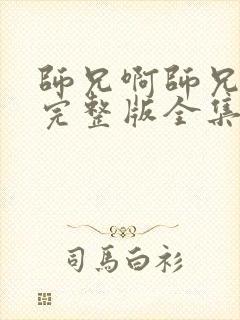 師兄啊師兄
完整版全集
司馬白衫